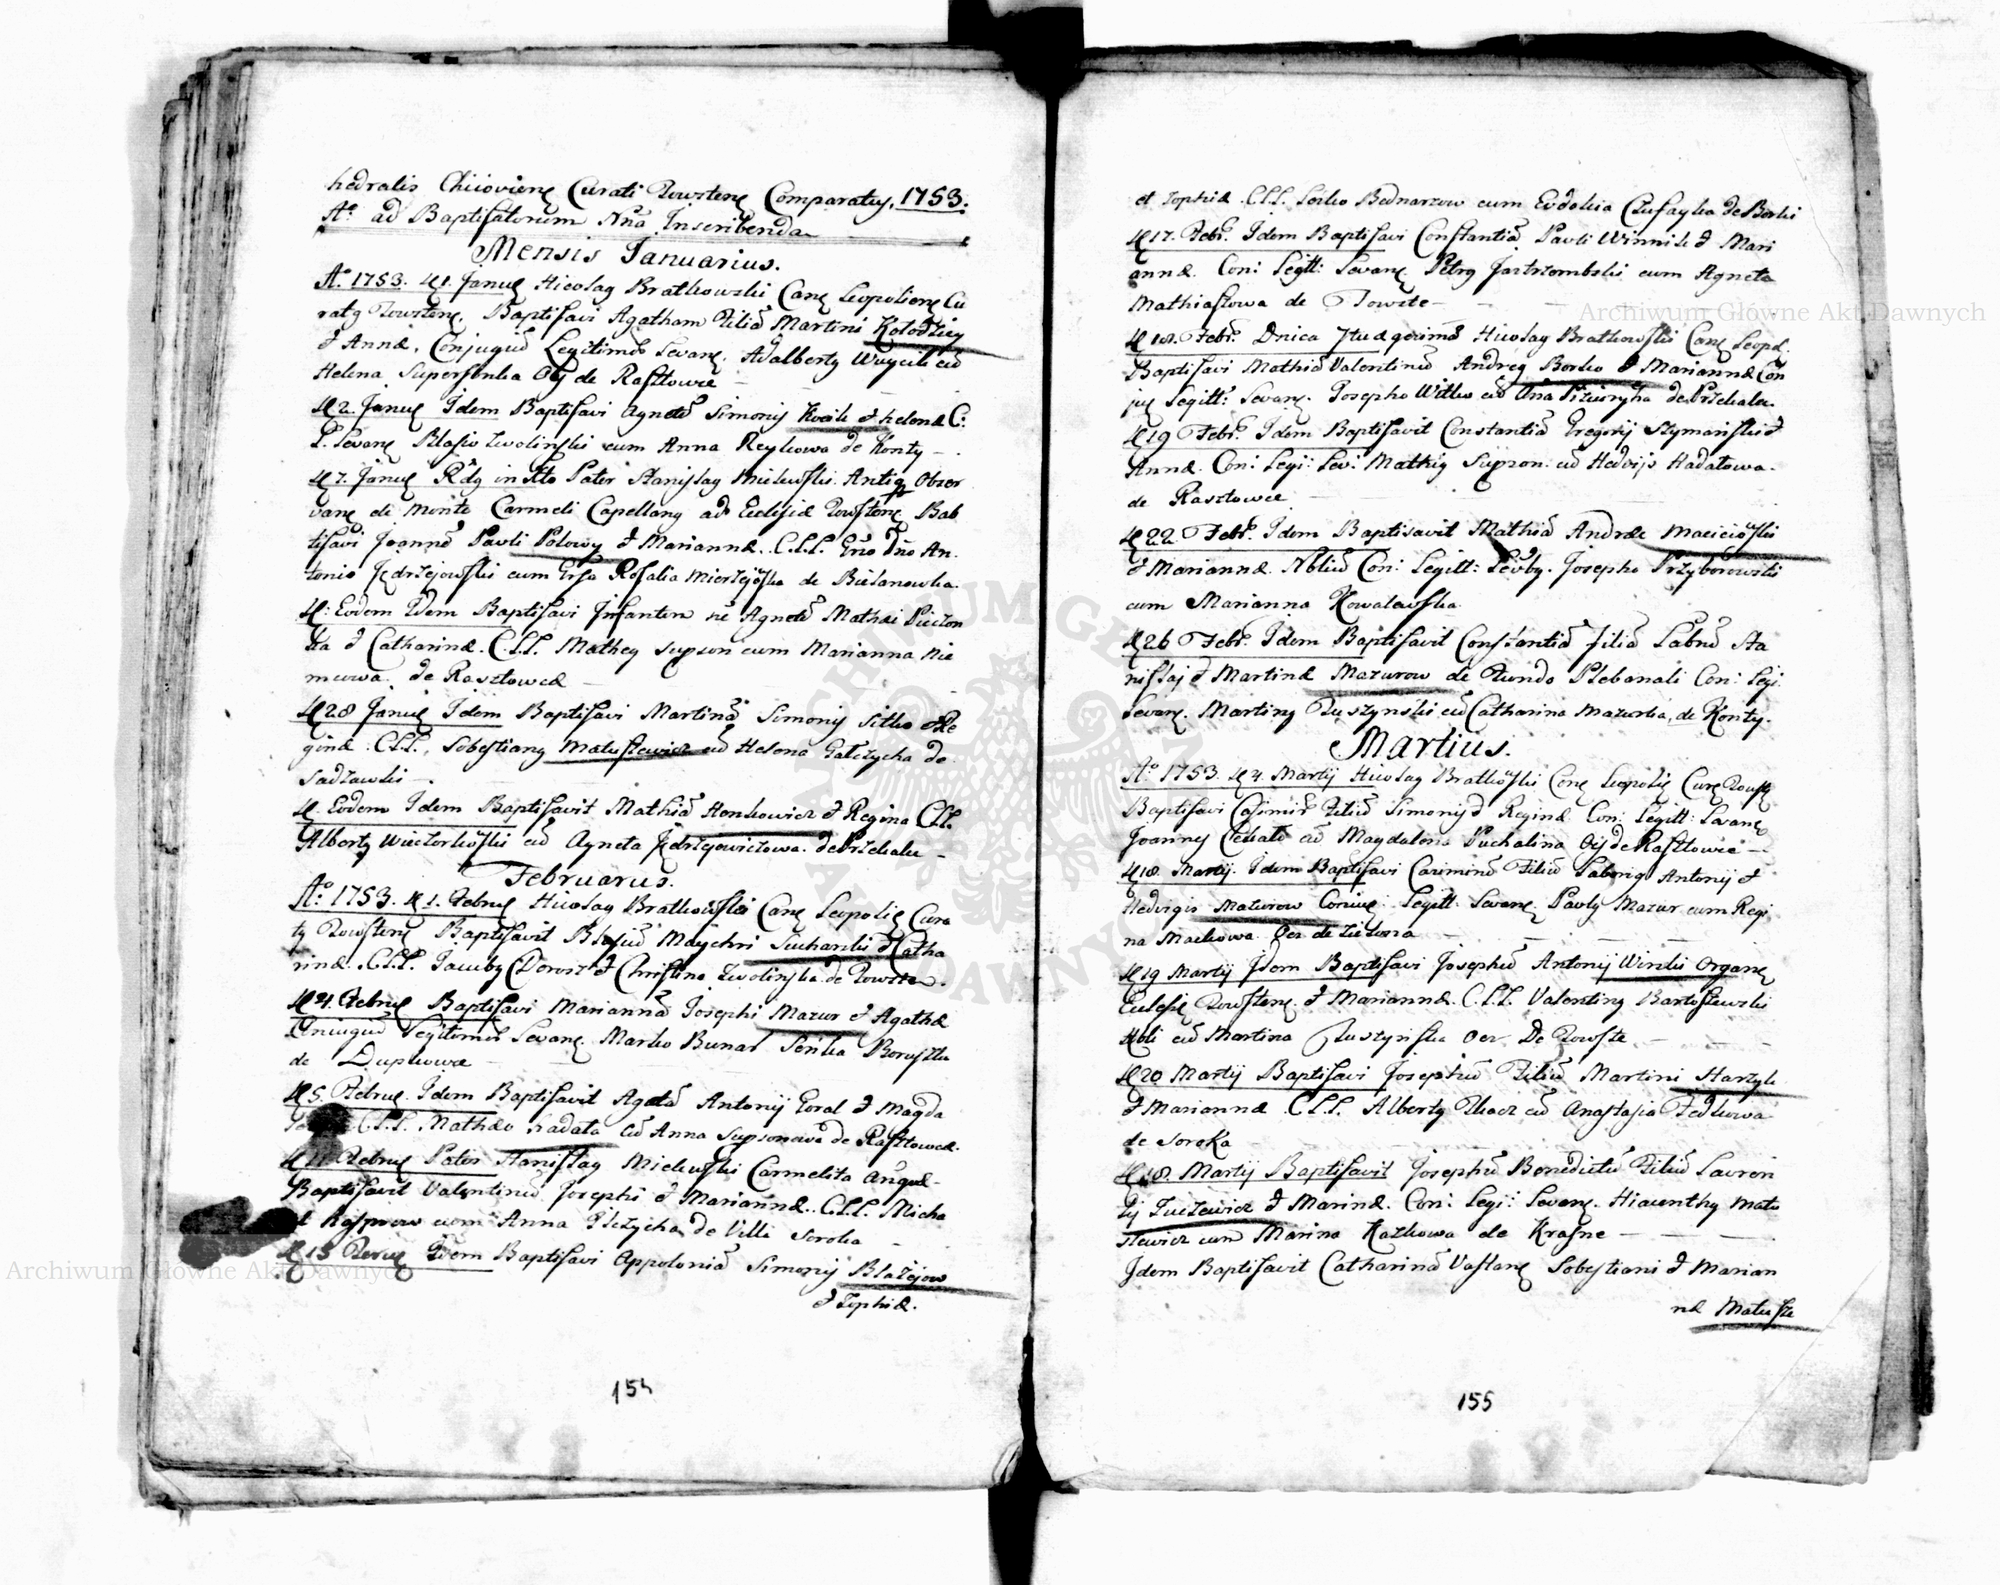 hedralis Chiiovienę Curati Towstenę Comparatę, 1753.
Aº: ad Baptisatorum Nña Inscribenda
Mensis Ianuarius.
Aº 1753. d 1. Januę Nicolaę Bratkowski Canę Leopolienę Cu
ratę Towstenę. Baptisavi Agatham Filiã Martini Kołodziey
& Annæ, Conjugũ Legitimor Levanę. Adalbertę Woycik cũ
Helena Supersonka Oęs de Rasztowce
d 2. Januę Idem Baptisavi Agnetẽ Simonis Kocik & Helenæ C:
L. Levanę Blasio Zwolinski cum Anna Reykowa de Konty
d 7. Januę Rdę in Xto Pater Stanislaę Mielewski Antiq Obser
vanę de Monte Carmeli Capellanę ad Eclesiæ Towstenę Bab
tisavi Joannẽ Pauli Polowy & Mariannæ. C.L.L. Gnso Dño An
tonio Jędrzejowski cum Grsa Rosalia Mierzejoska de Bielanowka.
d: Eodem Idem Baptisavi Infantem nẽ Agnetẽ Mathæi Pieczon
ka & Catharinæ. C.L.L. Matheę Supson cum Marianna Nie
mcowa de Rasztowce
d 28 Januę Idem Baptisavi Martinã Simonis Sitko & Re
ginæ C.L.L., Sobestianę Matusiewicz cũ Helena Gałczycha de
Sadzawki
d Eodem Idem Baptisavit Mathiã Honkowicz & Regina C.L.L.
Albertę Wieczorkoski cũ Agneta Jędrzejowiczowa de Przekalec
Februarus.
Aº: 1753. d 1. Februę Nicolaę Bratkowski Canę Leopolię Cura
tę Towstenę Baptisavit Blasiũ Maychri Sucharski & Catha
rinæ. C.L.L. Iacubę Dorosz & Christina Zwolinska de Towste.
d 4. Februę Baptisavi Mariannã Josephi Mazur & Agathæ
Coniugũ Legitimor Levanę. Marko Bunar Senka Boruszka
de Dupkowce
d 5. Februę Idem Baptisavit Agatã Antonij Goral & Magda
C.L.L. Mathæo Hadata cũ Anna Supsonowa de Rasztowce.
d 11. Februę Pater Stanislaę Mielewski Carmelita
Baptisavit Valentinũ Josephi & Mariannæ. C.L.L. Micha
Kasprow cum Anna Ilczycha de Villi Soroka
d 13 Februę Idem Baptisavi Appoloniã Simonis Błażejow
& Zophiæ.
154
et Zophiæ C.L.L. Senko Bednarzow cum Eudokia Czufayka de Borki
d 17. Febr. Idem Baptisavi Constantiã Pauli Winnik & Mari
annæ. Con: Legitt: Levanę Petrę Jastrzembski cum Agneta
Mathiaszowa de Towste
d 18. Febr. Dnica Nicolaę Bratkowski Canę Leopol.
Baptisavi Mathiã Valentinũ Andreę Borko & Mariannæ Con
ju Legitt: Levanę. Josepho Witko cũ Ana de Przekalec.
d 19 Febr. Idem Baptisavit Constantiã Gregorij Szymanski &
Annæ. Con: Legi: Lev: Mathię Supson: cũ Hedvijs Hadałowa.
de Rasztowce
d 22. Febr. Idem Baptisavit Mathiã Andræ Macicioski
& Mariannæ. Nbliũ Con: Legitt: Levby. Josepho Przyborowski
cum Marianna Kowalewska
d 26 Febr. Idem Baptisavit Constantiã Filiã Labrũ Sta
nislaj & Martinæ Mazurow de Fundo Plebanali Con: Legi:
Levanę. Martinę Ruszynski cũ Catharina Mazurka, de Konty.
Martius.
Aº: 1753. d 4. Martij Nicolaę Bratkoski Canę Leopolię Curę Towstę
Baptisavi Casimirũ Filiũ Simonis & Reginæ Con: Legitt: Levanę
Joannes cũ Magdalena Puchalina Oęs de Rasztowce
d 18. Martij. Idem Baptisavi Cazimirũ Filiũ Laborię Antonij &
Hedvigis Mazurow Coniuę: Legitt: Levanę. Paulę Mazur cum Regi
na Mackowa. Oes de Zielona
d 19 Martij Idem Baptisavi Josephũ Antonij Winski Organę
Eulesię Towstenę. & Mariannæ. C.L.L. Valentinę Bartoszewski
Nbli cũ Martina Ruszynska oes. De Towste
d 20. Martij Baptisavi Josephũ Filiũ Martini Harzyk
& Mariannæ C.L.L. Albertę Tkacz cũ Anastasia Fedkowa
de Soroka
d 18. Martij Baptisavit Josephũ Benedictũ Filiũ Lavren
tij Zuczewicz & Marinæ. Con: Legi: Levanę. Hiacinthę Matu
szewicz cum Marina Kazkowa de Krasne
Idem Baptisavit Catharinã Sobestiani & Marian
næ Matusze
155
Archiwum Główne Akt Dawnych
Archiwum Główne Akt Dawnych
ARCHIWUM GŁÓWNE AKT DAWNYCH